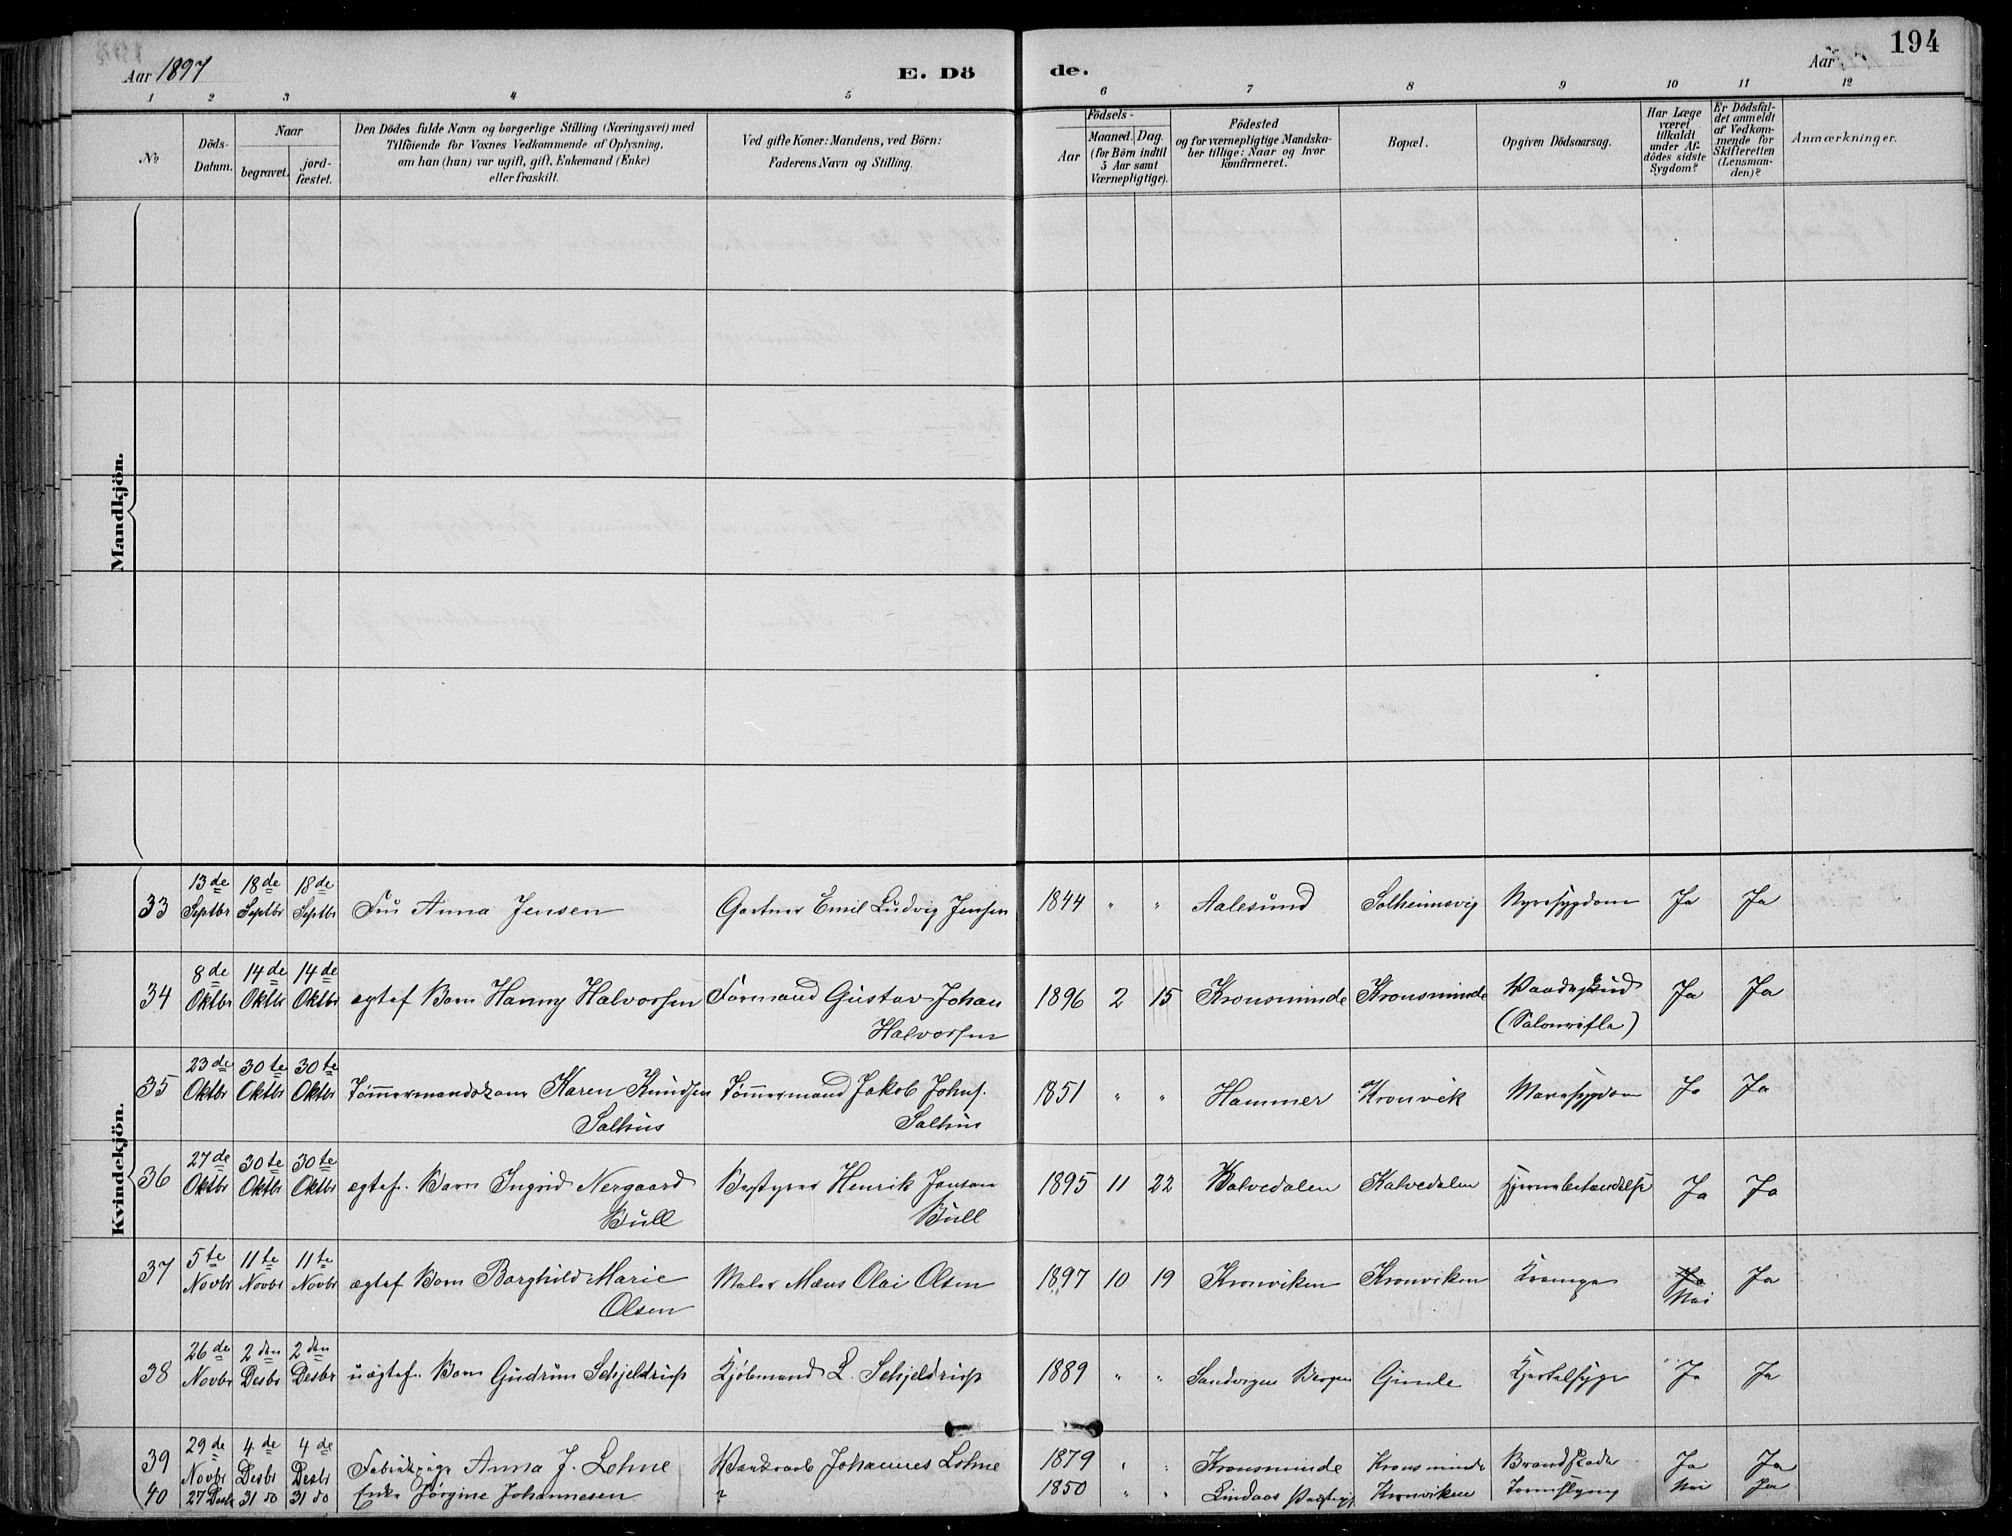 194
Aar 1897
E. Dö
de.
Aar
1 2 3 4 5 6 7 8 9 10 11 12
No
Döds-Datum.
Naar
begravet.
jord-fæstet.
Den Dödes fulde Navn og borgerlige Stilling (Næringsvei) med
Tilföiende for Voxnes Vedkommende af Oplysning,
om han (hun) var ugift, gift, Enkemand (Enke)
eller fraskilt.
Ved gifte Koner: Mandens, ved Börn:
Faderens Navn og Stilling.
Födsels-
Aar
Maaned. Dag.
(for Börn indtil
5 Aar samt
Værnepligtige).
Födested
og for værnepligtige Mandska-
ber tillige: Naar og hvor
konfirmeret.
Bopæl.
Opgiven Dödsaarsag.
Har Læge
været
tilkaldt
under Af-
dödes sidste
Sygdom?
Er Dödsfal-
det anmeldt
af Vedkom-
mende for
Skifteretten
(Lensman-
den)?
Anmærkninger.
Mandkjön.
Kvindekjön.
33 13de Septbr 18de Septbr 18de Septbr Fru Anna Jensen Gartner Emil Ludvig Jensen 1844 " " Aalesund Solheimsvig Nyresygdom Ja Ja
34 8de Oktbr 14de Oktbr 14de Oktbr ægtef Barn Hanny Halvorsen Formand Gustav Johan Halvorsen 1896 2 15 Kronsminde Kronsminde Vaadeskud (Salonrifle) Ja Ja
35 23de Oktbr 30te Oktbr 30te Oktbr Tömmermandskone Karen Knudsen Salhus Tömmermand Jakob Johns. Salhus 1851 " " Hammer Kronvik Mavesygdom Ja Ja
36 27de Oktbr 30te Oktbr 30te Oktbr ægtef. Barn Ingrid Nergaard Bull Bestyrer Henrik Jansen Bull 1895 11 22 Kalvedalen Kalvedalen Hjernebetændelse Ja Ja
37 5te Novbr 11te Novbr 11te Novbr ægtef Barn Borghild Marie Olsen Maler Mæns Olai Olsen 1897 10 19 Kronviken Kronviken Krampe Ja Nei Ja
38 26de Novbr 2den Desbr 2den Desbr uægtef. Barn Gudrun Schjeldrup Kjöbmand L. Schjeldrup 1889 " " Sandvigen Bergen Gimle Kjertelsyge Ja Ja
39 29de Novbr 4de Desbr 4de Desbr Fabrikpige Anna J. Lohne Johannes Lohne 1879 " " Kronsminde Kronsminde Brandskade Ja Ja
40 27 Desb 31 do 31 do Enke Jörgine Johannesen ? 1850 " " Lindaas Kronviken Nei Ja